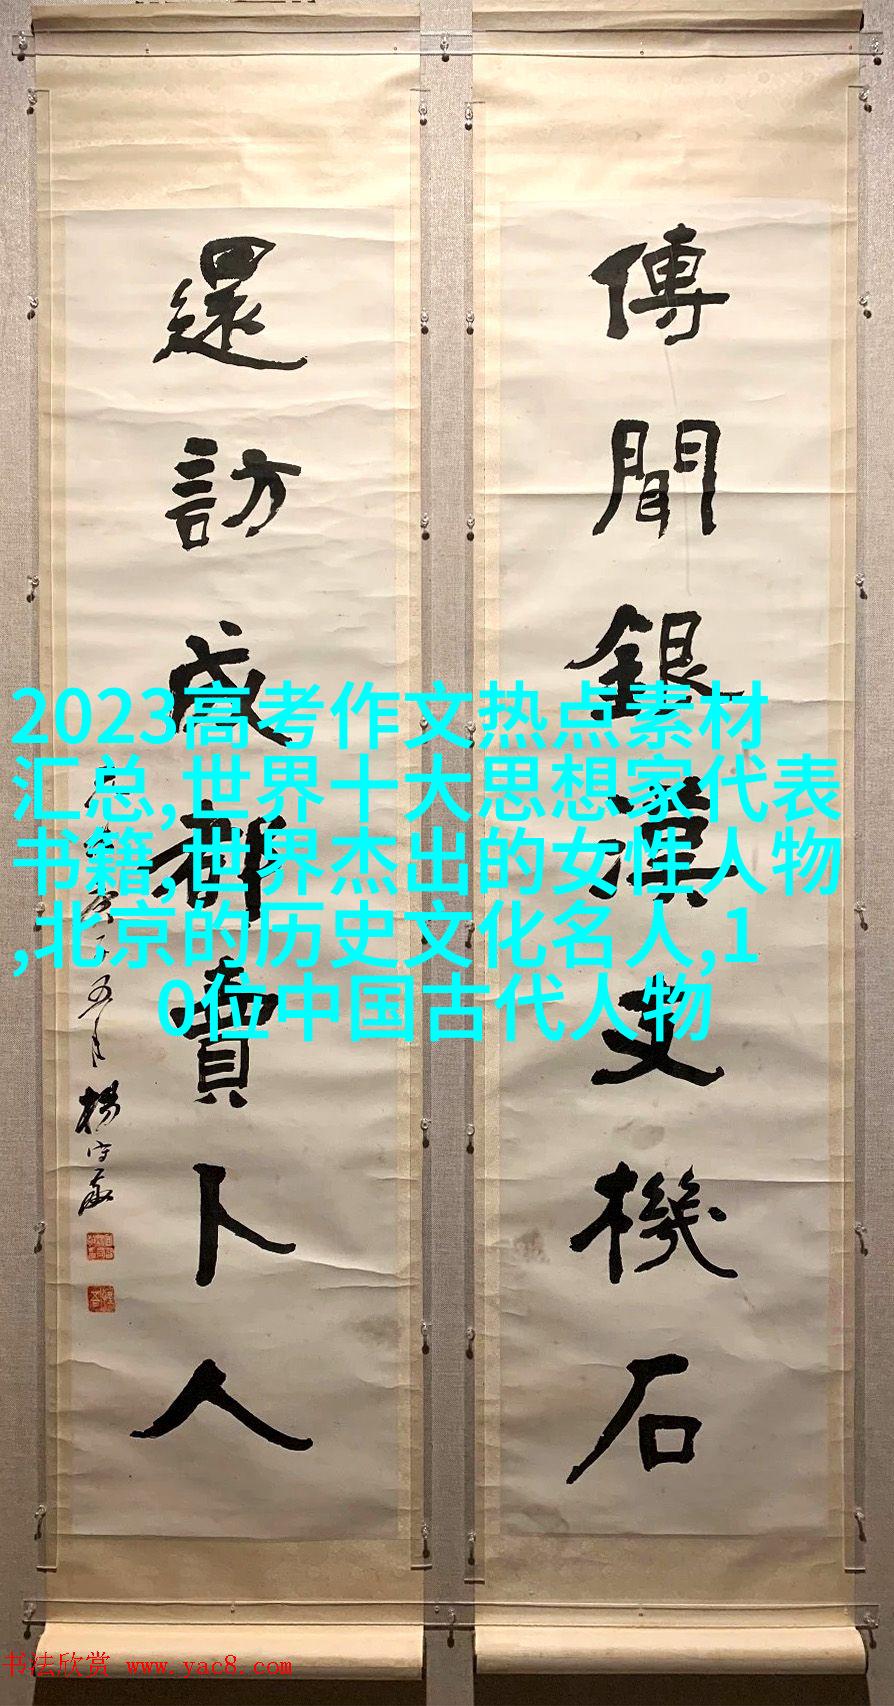 傳聞銀漢支機石
還訪成都賣卜人
五月楊守敬
2023高考作文热点素材
汇总,世界十大思想家代表
书籍,世界杰出的女性人物
,北京的历史文化名人,1
0位中国古代人物
书法欣赏 www.yac8.com